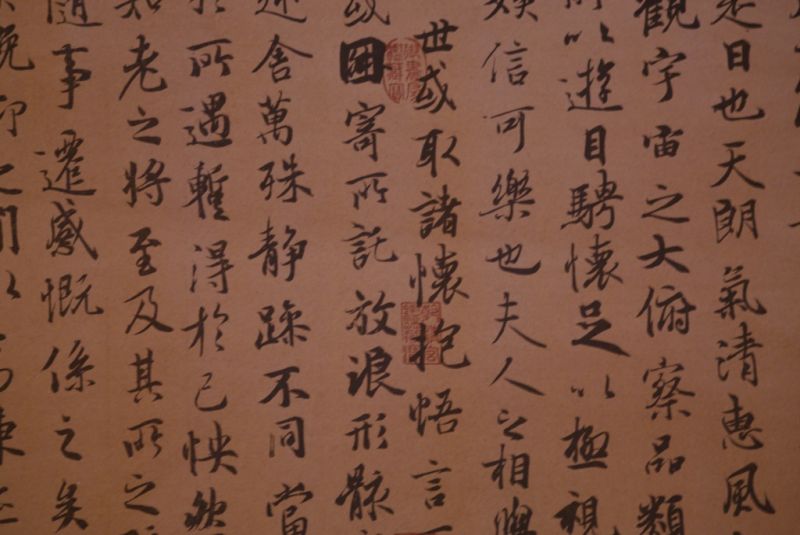 是日也天朗氣清惠風
觀宇宙之大俯察品類
所以遊目騁懷足以極視
娛信可樂也夫人之相與
世或取諸懷抱悟言一
或因寄所託放浪形骸
舍萬殊静躁不同當
於所遇蹔得於己怏然
知老之將至及其所之
隨事遷感慨係之矣
俛仰之間以為陳